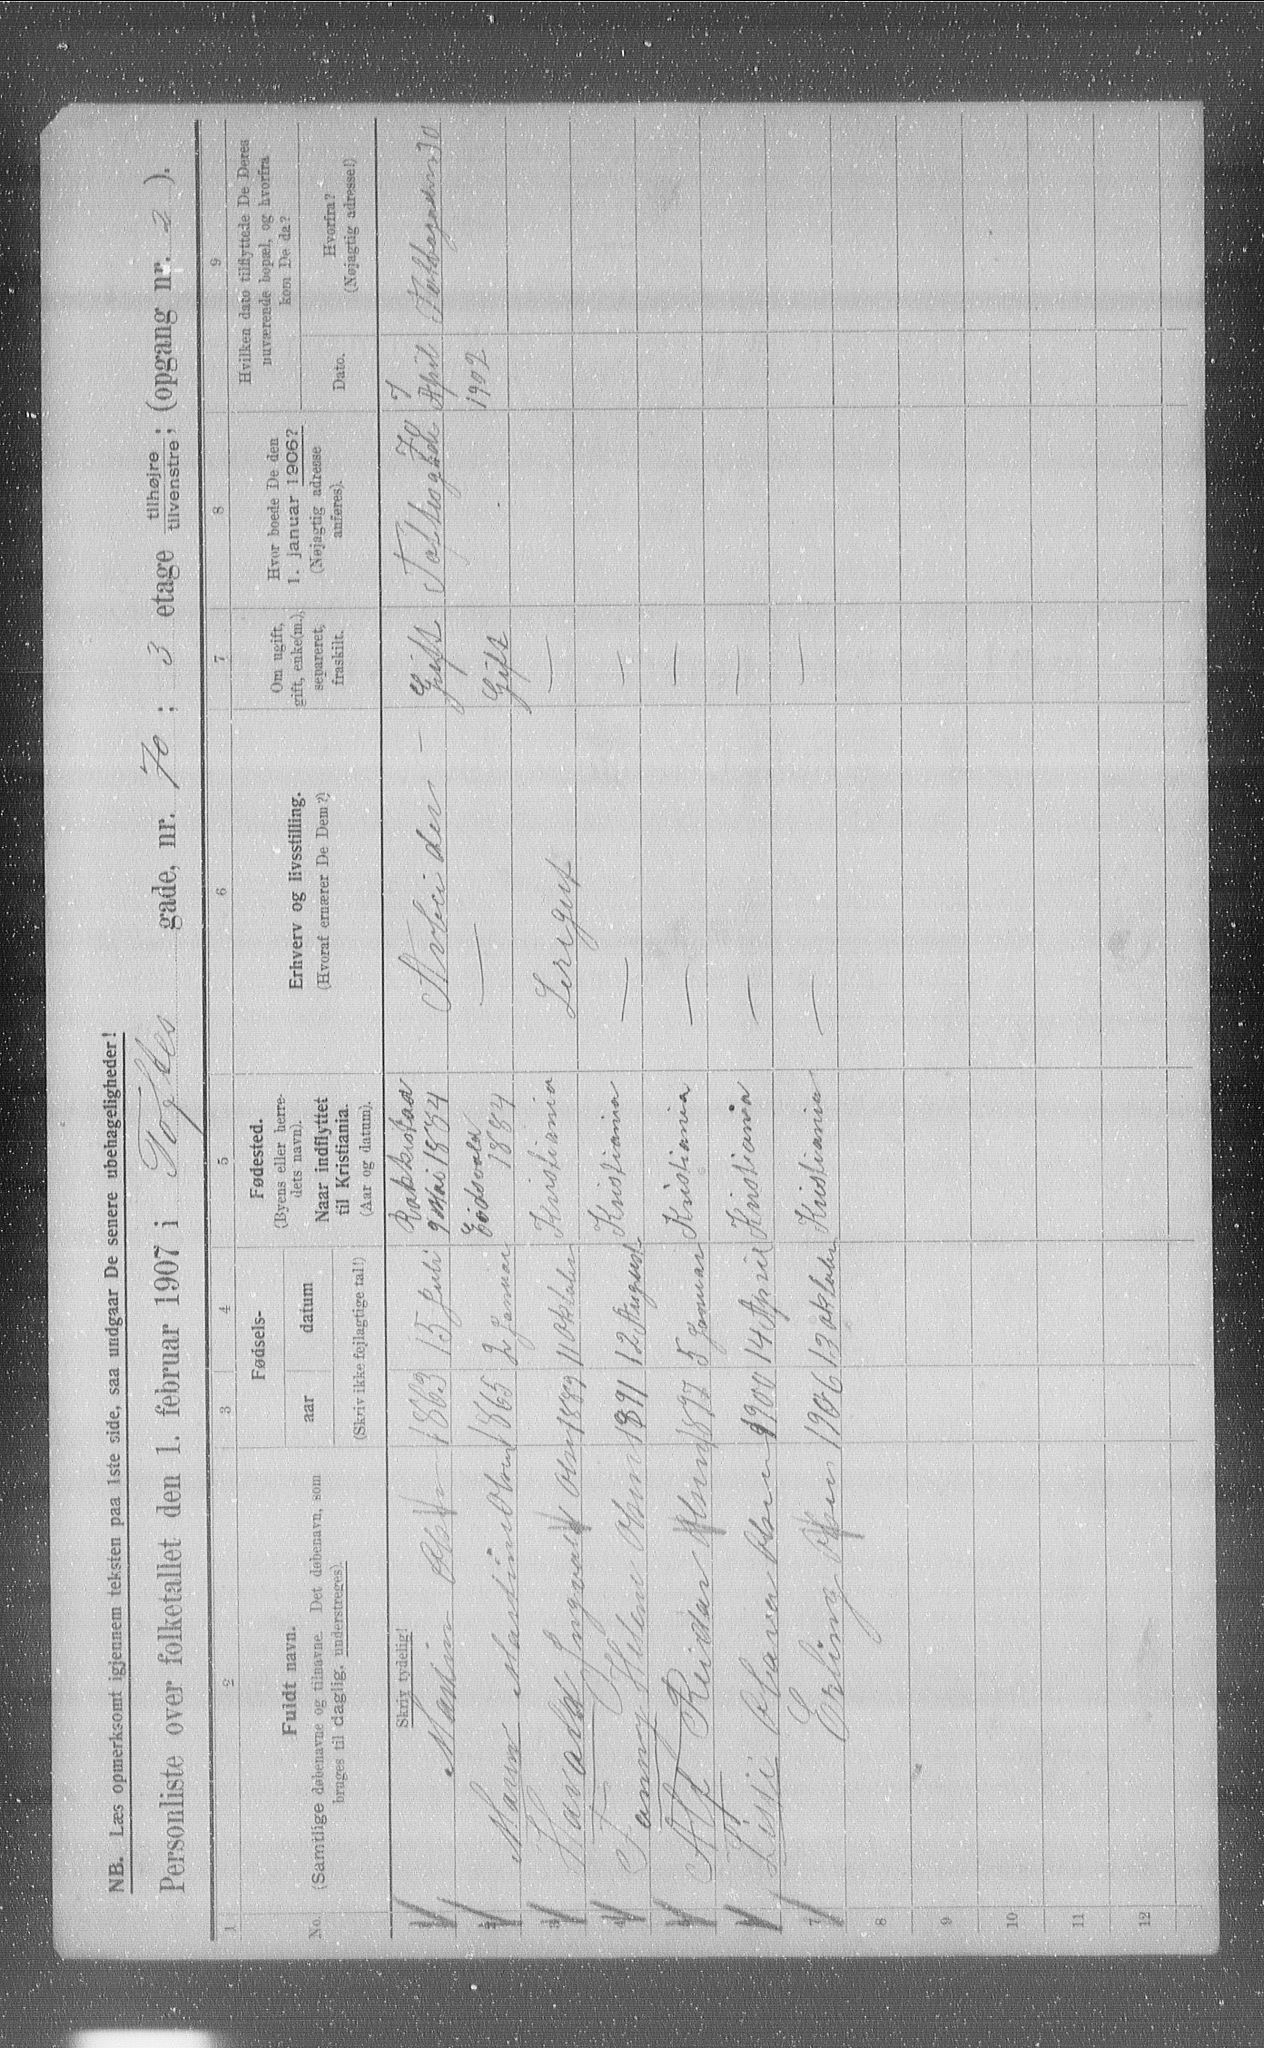 NB. Læs opmerksomt igjennem teksten paa 1ste side, saa undgaar De senere ubehageligheder!
Personliste over folketallet den 1. februar 1907 i Toftes gade, nr. 70; 3 etage tilhøjre / tilvenstre; (opgang nr. 2).
1 2 3 4 5 6 7 8 9
No.
Fuldt navn.
(Samtlige døbenavne og tilnavne. Det døbenavn, som
bruges til daglig, understreges).
Fødsels-
aar datum
(Skriv ikke fejlagtige tal!)
Fødested.
(Byens eller herre-
dets navn).
Naar indflyttet
til Kristiania.
(Aar og datum).
Erhverv og livsstilling.
(Hvoraf ernærer De Dem?)
Om ugift,
gift, enke(m.),
separeret,
fraskilt.
Hvor boede De den
1. januar 1906?
(Nøjagtig adresse
anføres).
Hvilken dato tilflyttede De Deres
nuværende bopæl, og hvorfra
kom De da?
Dato.
Hvorfra?
(Nøjagtig adresse!)
Skriv tydelig!
1 Martin Olsen 1863 15 Juli Rakkestad 9 Mai 1884 Arbeider – Gift Toftesgade 70 7 April 1902
2 Maren Martine Olsen 1865 2 Januar Eidsvold 1884 — Gift
3 Harald Ingvald Olsen 1889 11 Oktober Kristiania —
4 Fanny Helene Olsen 1891 12 August Kristiania — —
5 Alf Reidar Olsen 1897 5 Januar Kristiania — —
6 Lissi Olava Olsen 1900 14 April Kristiania — —
7 Erling Olsen 1906 13 oktober Kristiania — —
8
9
10
11
12